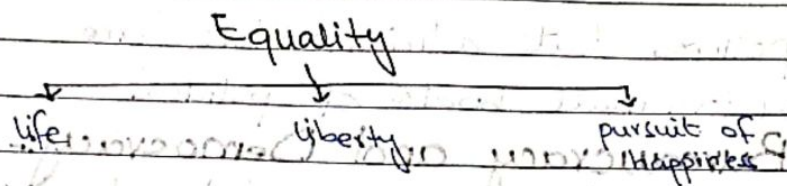 Equality
life liberty pursuit of
Happiness